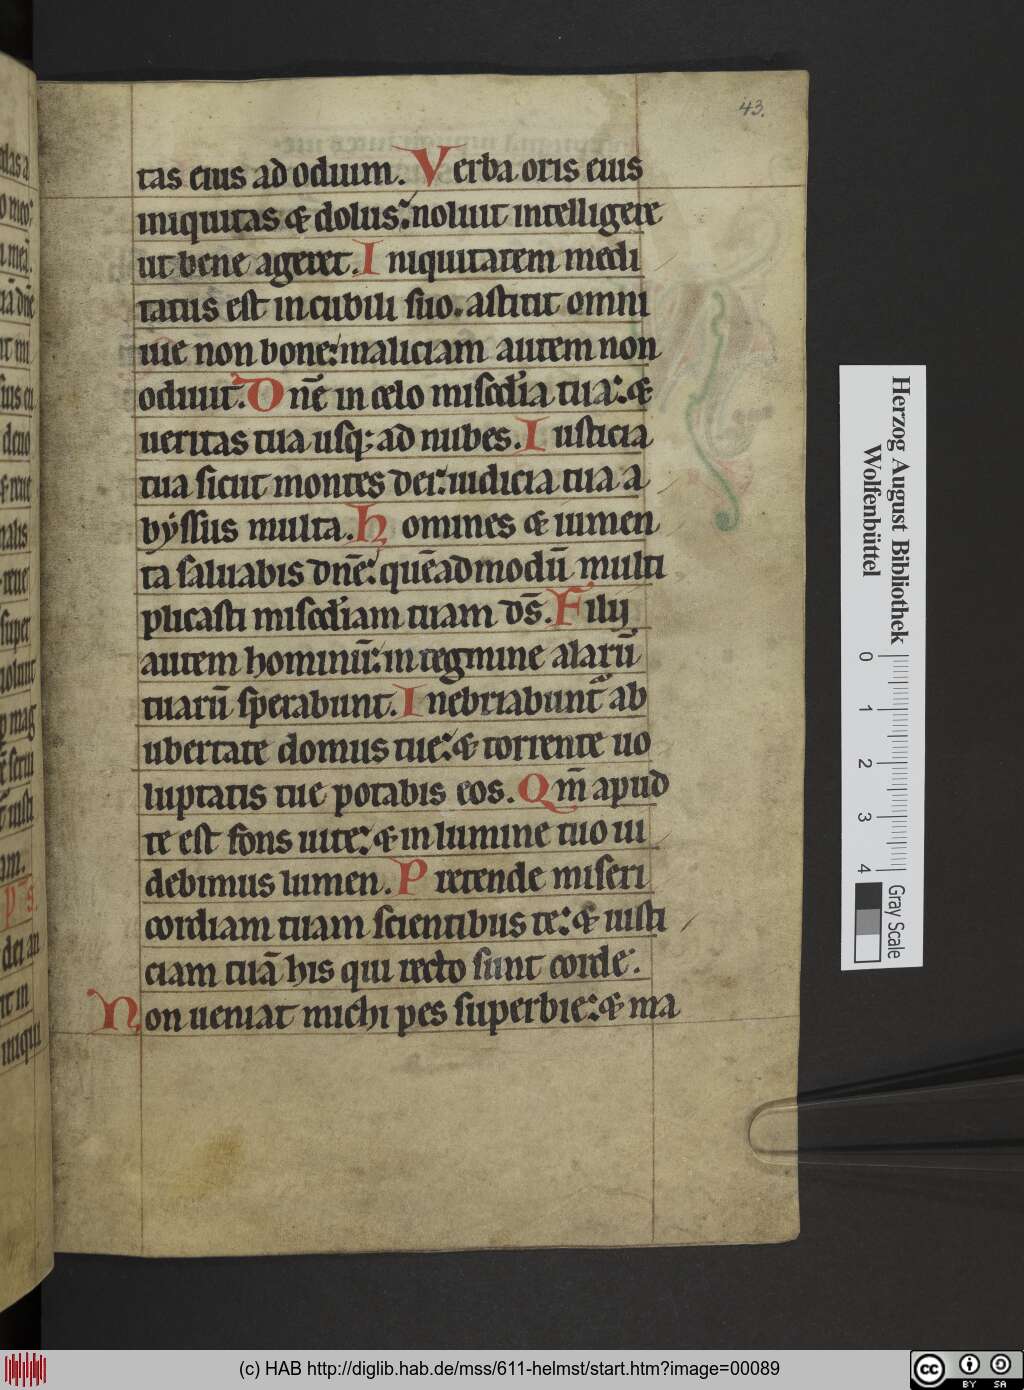 43.
tas eius ad odium. Verba oris eius
iniquitas & dolus: noluit intelligere
ut bene ageret. Iniquitatem medi
tatus est in cubili suo. astitit omni
uie non bone: maliciam autem non
odiuit. Dn̄e in celo mised̓ia tua: &
ueritas tua usq; ad nubes. Iusticia
tua sicut montes dei: iudicia tua a
byssus multa. Homines & iumen
ta saluabis dn̄e: quēadmodū multi
plicasti mised̓iam tuam ds̄. Filij
autem hominū: in tegmine alarū
tuarū sperabunt. Inebriabunt̃ ab
ubertate domus tue: & torrente uo
luptatis tue potabis eos. Qm̄ apud
te est fons uite: & in lumine tuo ui
debimus lumen. Pretende miseri
cordiam tuam scientibus te: & iusti
ciam tuā his qui recto sunt corde.
Non ueniat michi pes superbie: & ma
Herzog August Bibliothek
Wolfenbüttel
0 1 2 3 4
Gray Scale
(c) HAB http://diglib.hab.de/mss/611-helmst/start.htm?image=00089
cc BY SA